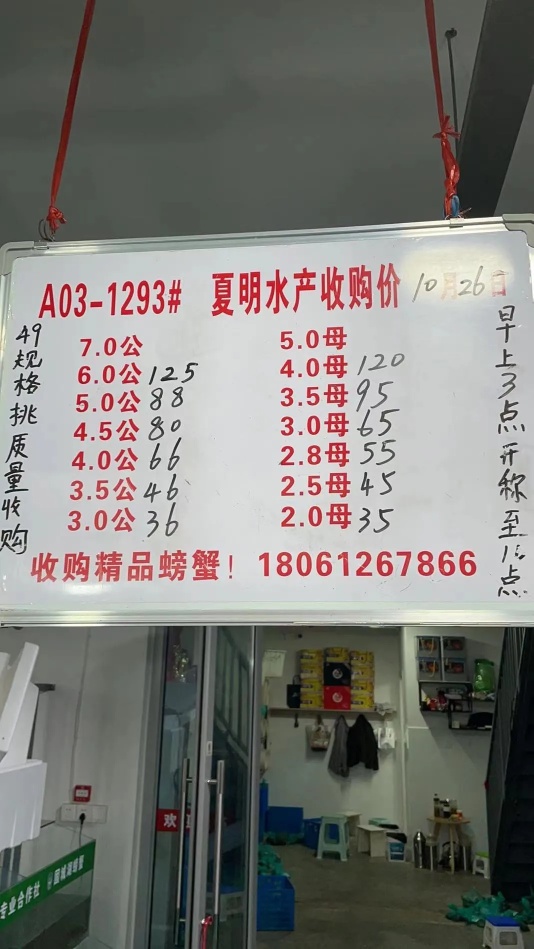 A03-1293# 夏明水产收购价 10月26日
49规格挑质量收购
7.0公
6.0公 125
5.0公 88
4.5公 80
4.0公 66
3.5公 46
3.0公 36
5.0母
4.0母 120
3.5母 95
3.0母 65
2.8母 55
2.5母 45
2.0母 35
早上3点开称至1点
收购精品螃蟹！18061267866
欢
专业合作社 固城湖螃蟹